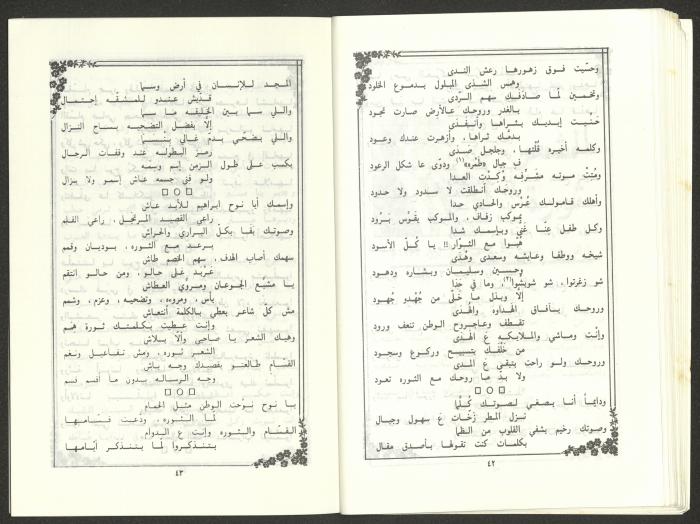 وحنّيت فوق زهورها رعش الندى
وهمس الشذى المبلول بدموع الخلود
وتخمين لمّا صادفك سهم الرّدى
بالغدر وروحك عالأرض صارت تجود
حنّيت إيديك بثراها وأنفدَى
بدمّك ثراها، وأزهرت عندك وعود
وكلمه أخيره قُلتها، وجلجل صدى
ف جبال «طمره»(١) ودوّى عا شكل الرعود
ومُتِتْ موته مشرّفه وكْدت العدا
وروحك أنطلقت لا سدود ولا حدود
وأهلك قامولك عُرْس والحادي حدا
بموكب زفاف، والموكب يقوّس برود
وكل طفل عِنّا غَنّى وباسمك شدا
هُبّوا مع الثوّار !! يا كُلّ الأسود
شيخه ووطفا وعايشه وسعدى وهُدى
وحسين وسليمان وبشاره ودهود
شو زغرتوا، شو شوبشوا(٢)، وما في حدا
إلّا وبذل ما خلّى من جُهْدو جُهود
وروحك بآفاق الهداوه والهُدى
تقطف وعاجروح الوطن تنعف ورود
وإنْت وماشي والملايكه ع الهدى
من خلْفك بتسبيح وركوع وسجود
وروحك ولو راحت بتبقى ع المدى
ولا بدّ ما روحك مع الثوره تعود
□ ○ □
ودايماً أنا بصغي لصوتك كُلْما
نزل المطر زخّات ع سهول وجبال
وصوتك رخيم بشفي القلوب من الظما
بكلمات كنت تقولها بأصدق مقال
٤٢
المجد للإنسان في أرض وسما
قدّيش عندو للمشقّه إحتمال
واللي سما بين الخليقه ما سما
إلّا بفضل التضحيه بساح النزال
واللي بضحّي بدم غالي بنسما
رمز البطوله عند وقفات الرجال
بكسب على طول الزمن إسم وسِمه
ولو في جسمه عاش إسمو ولا يزال
□ ○ □
وإسمك أبا نوح ابراهيم للأبد عاش
راعي القصيد المرتجل، راعي القلم
وصوتك بقا بكلّ البراري والحراش
برعد مع الثوره، بوديان وقمم
سهمك أصاب الهدف، سهم الخصم طاش
عربد على حالو، ومن حالو انتقم
يا مشبّع الجوعان ومروّي العطاش
بأس، ومروءه، وتضحيه، وعزم، وشمم
مش كلّ شاعر يعطي بالكلمة أنتعاش
وإنت عطيت بكلمتك ثورة هِمم
وهيك الشعر يا صاحبي وألّا بلاش
الشعر ثوره، ومش تفاعيل ونغم
القسّام طالعتو بقصيدك وجه باش
وجه الرساله بدون ما أقسم قسم
□ ○ □
يا نوح نوّحت الوطن مثل الحمام
لمّا الثوره، ودّعت قسّامها
القسّام والثوره وإنت ع الدوام
بتتذكروا لمّا بتتذكر أيّامها
٤٣